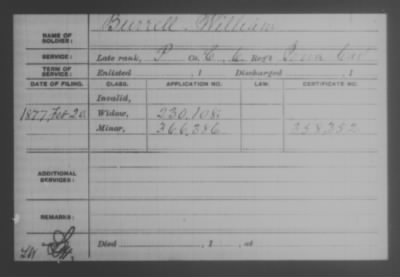 Burrell, William
NAME OF SOLDIER:
SERVICE: Late rank, P Co. C, 6 Reg't Cav
TERM OF SERVICE: Enlisted , 1 Discharged , 1
DATE OF FILING. CLASS. APPLICATION NO. LAW. CERTIFICATE NO.
Invalid,
1877, Feb 20 Widow, 230,108
Minor, 366,386 258,352
ADDITIONAL SERVICES:
REMARKS:
Died , 1 , at